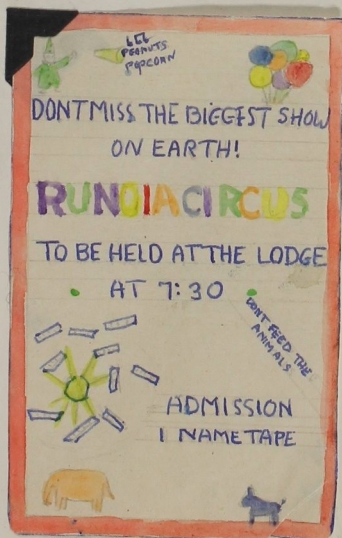 PEANUTS
POPCORN
DONT MISS THE BIGGEST SHOW
ON EARTH!
RUNOIA CIRCUS
TO BE HELD AT THE LODGE
AT 7:30
DONT FEED THE
ANIMALS
ADMISSION
1 NAME TAPE